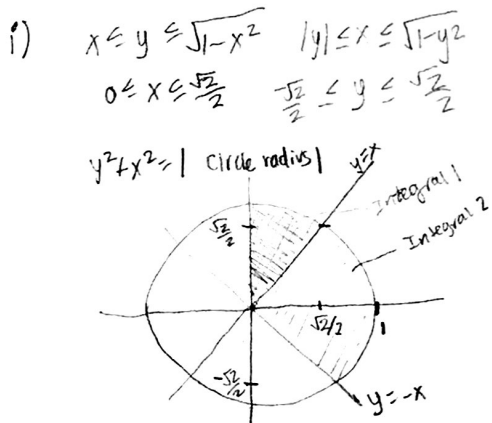 i) x ≤ y ≤ √1-x² |y| ≤ x ≤ √1-y²
0 ≤ x ≤ √2/2 -√2/2 ≤ y ≤ √2/2
y²+x²=1 circle radius 1
y=x
Integral 1
√2/2
Integral 2
√2/2
1
-√2/2
y=-x